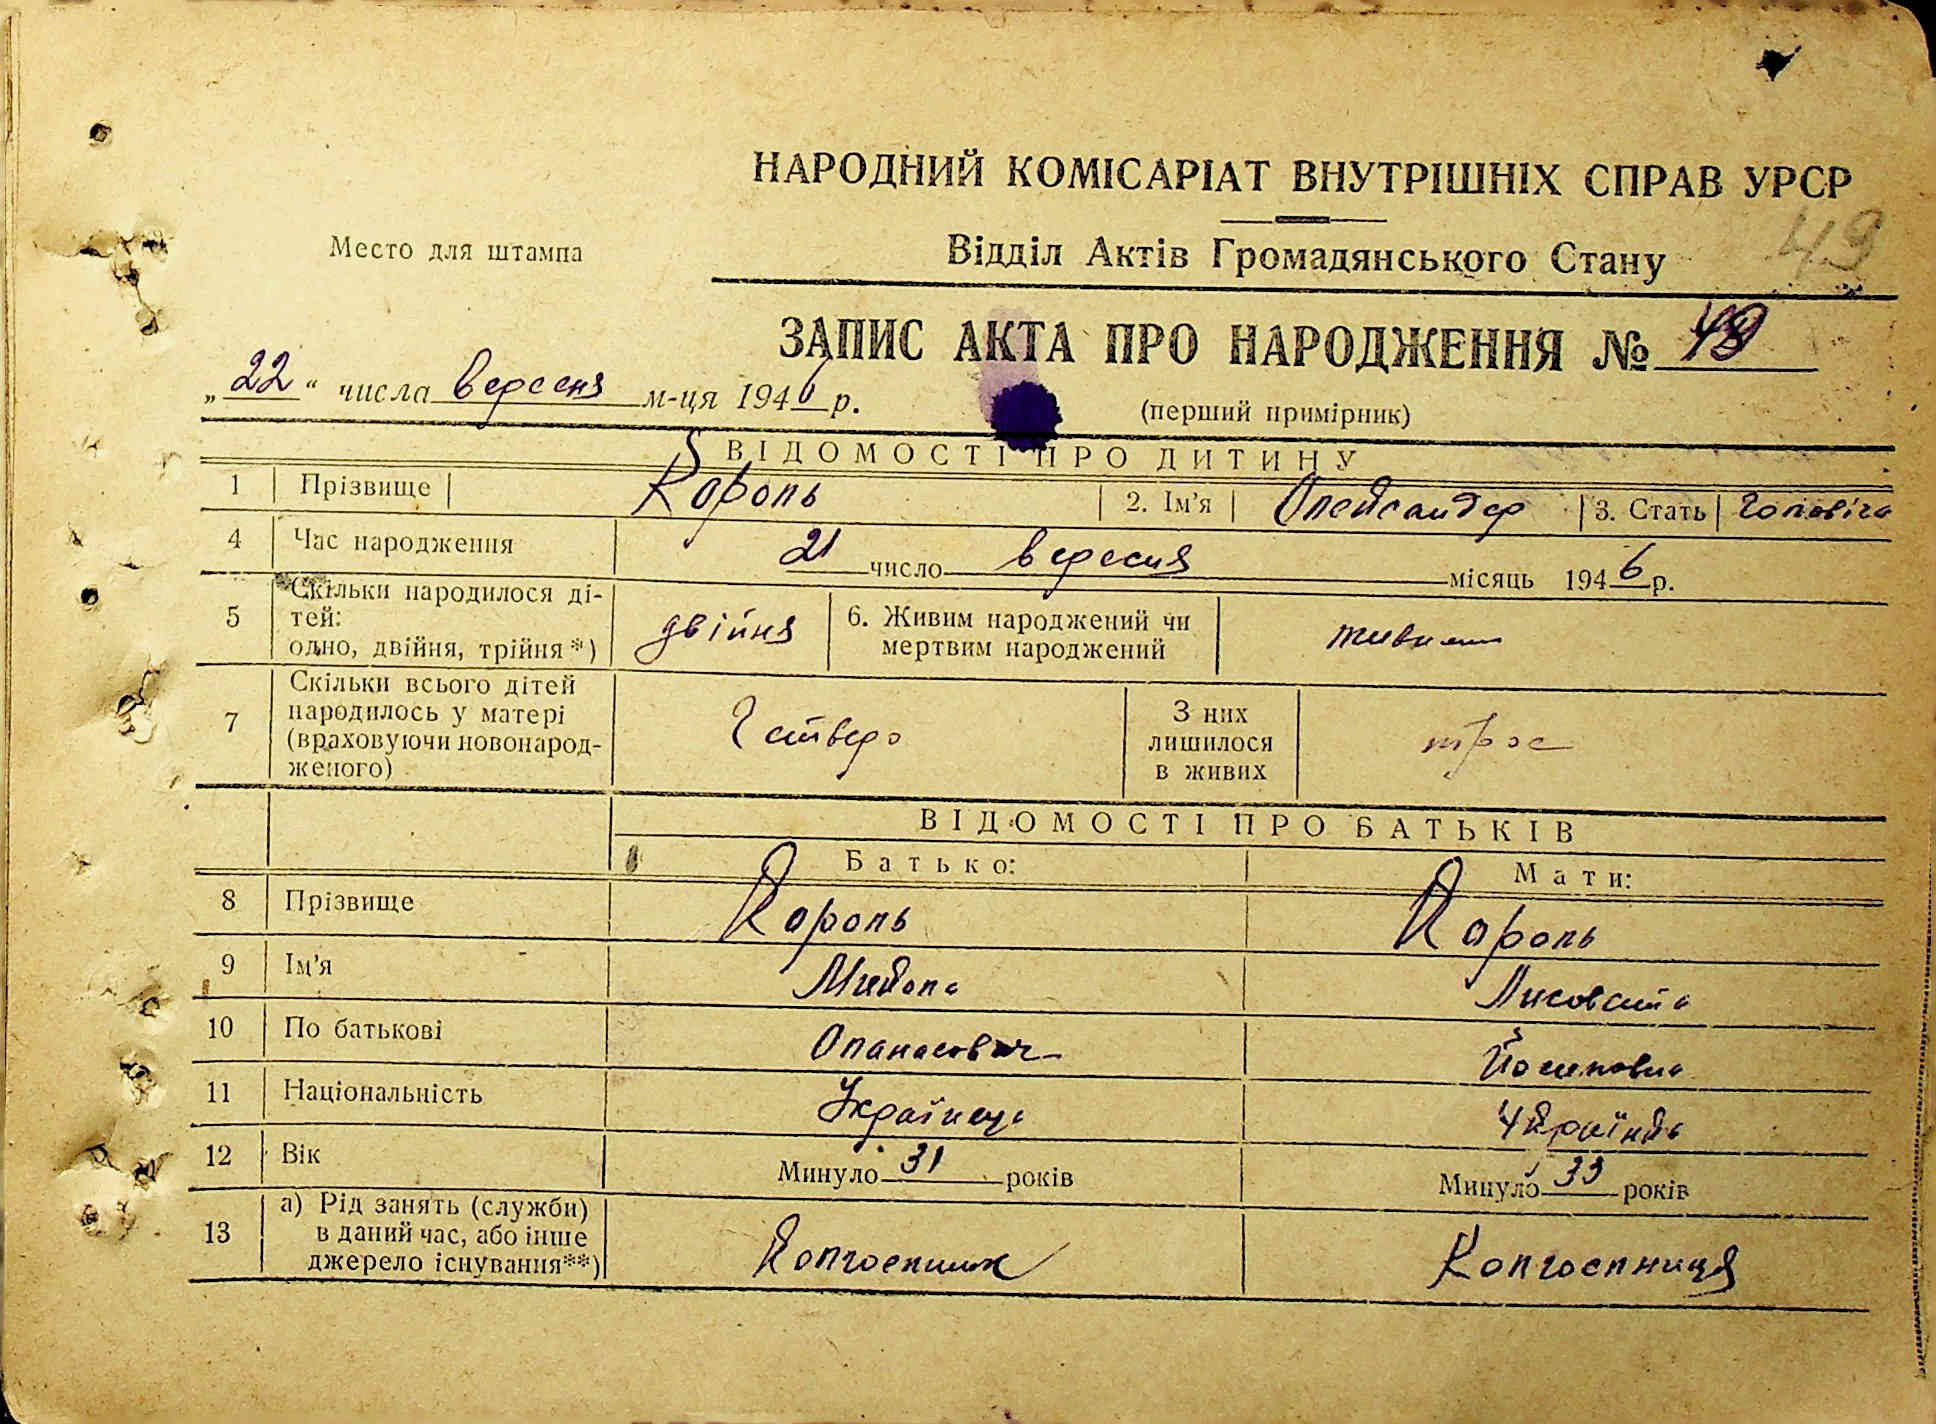 НАРОДНИЙ КОМІСАРІАТ ВНУТРІШНІХ СПРАВ УРСР
Место для штампа
Відділ Актів Громадянського Стану
49
ЗАПИС АКТА ПРО НАРОДЖЕННЯ №
„22“ числа вересня м-ця 1946 р.
(перший примірник)
ВІДОМОСТІ ПРО ДИТИНУ
1 Прізвище Король 2. Ім'я Олександер 3. Стать Чоловіча
4 Час народження 21 число вересня місяць 1946 р.
5 Скільки народилося ді-
тей:
одно, двійня, трійня*) двійня
6. Живим народжений чи
мертвим народжений живим
7 Скільки всього дітей
народилось у матері
(враховуючи новонарод-
женого) Четверо
З них
лишилося
в живих троє
ВІДОМОСТІ ПРО БАТЬКІВ
Батько: Мати:
8 Прізвище Король Король
9 Ім'я Микола Лисовета
10 По батькові Опанасович Йосиповна
11 Національність Українець Українка
12 Вік Минуло 31 років Минуло 33 років
13 а) Рід занять (служби)
в даний час, або інше
джерело існування**) Колгоспник Колгоспниця